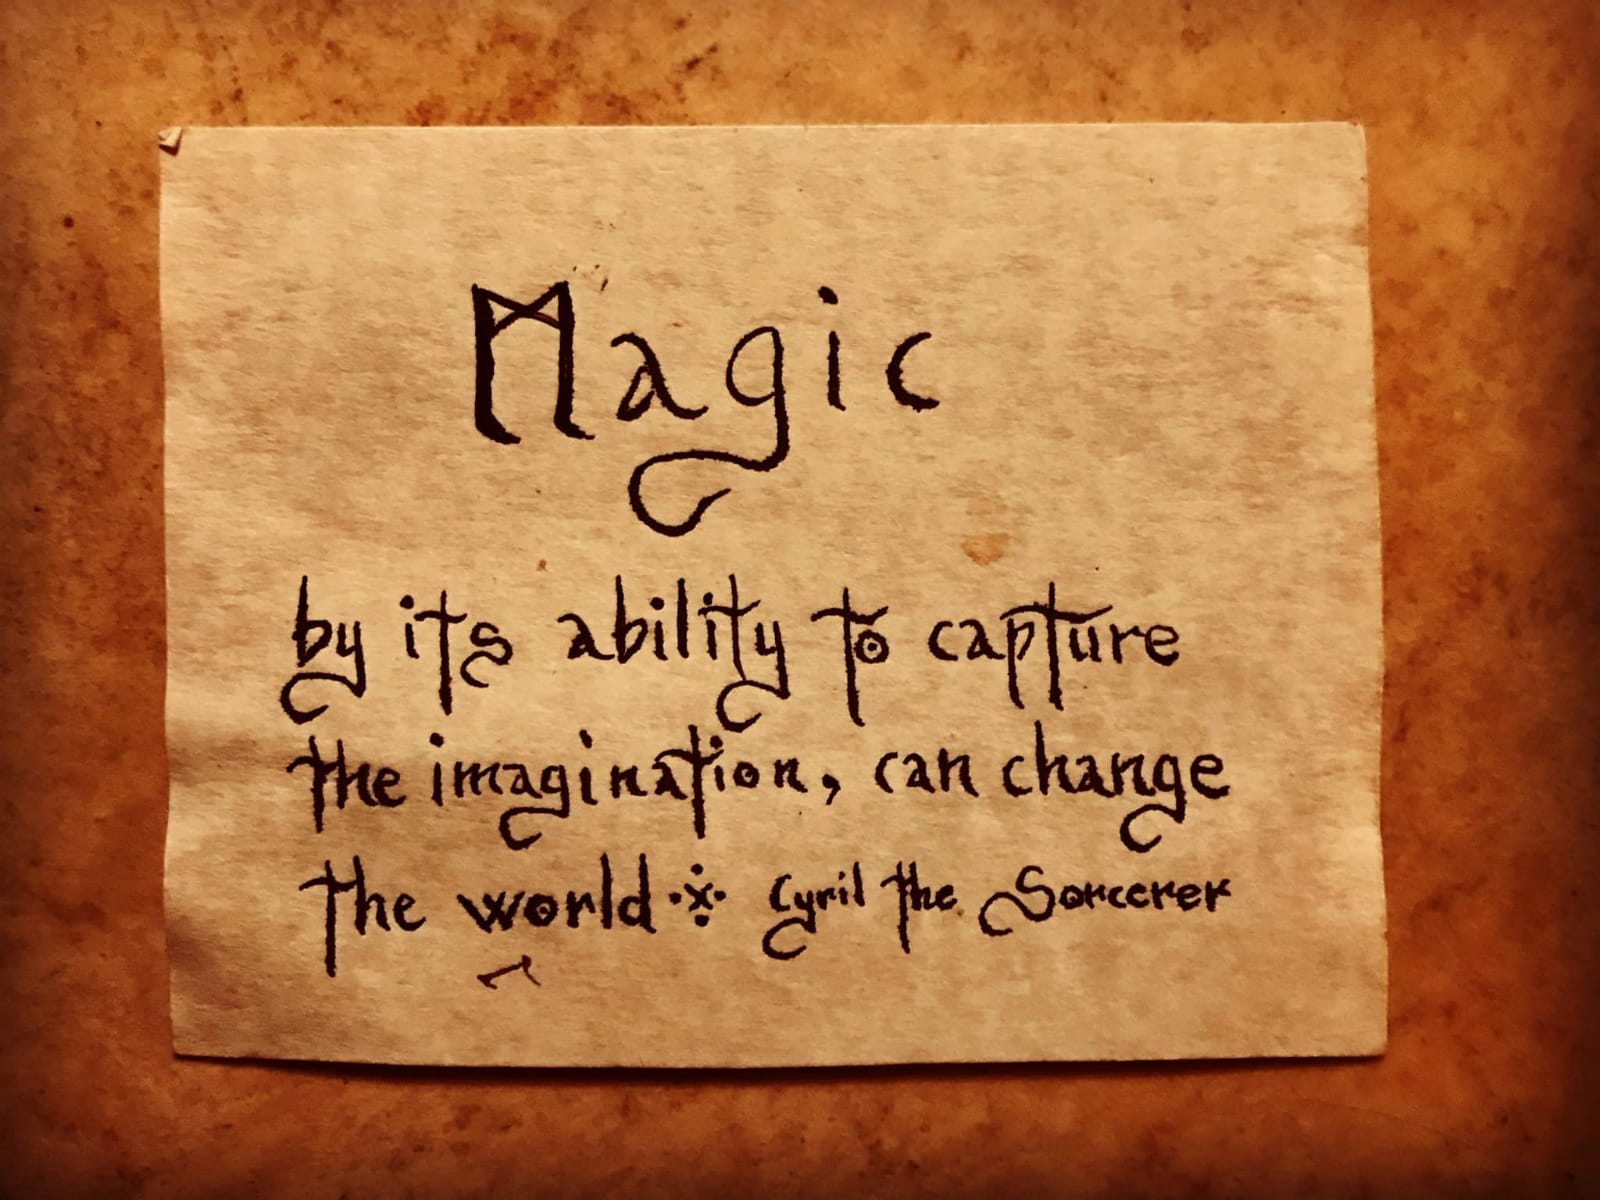 Magic
by its ability to capture
the imagination, can change
the world ※ Cyril the Sorcerer